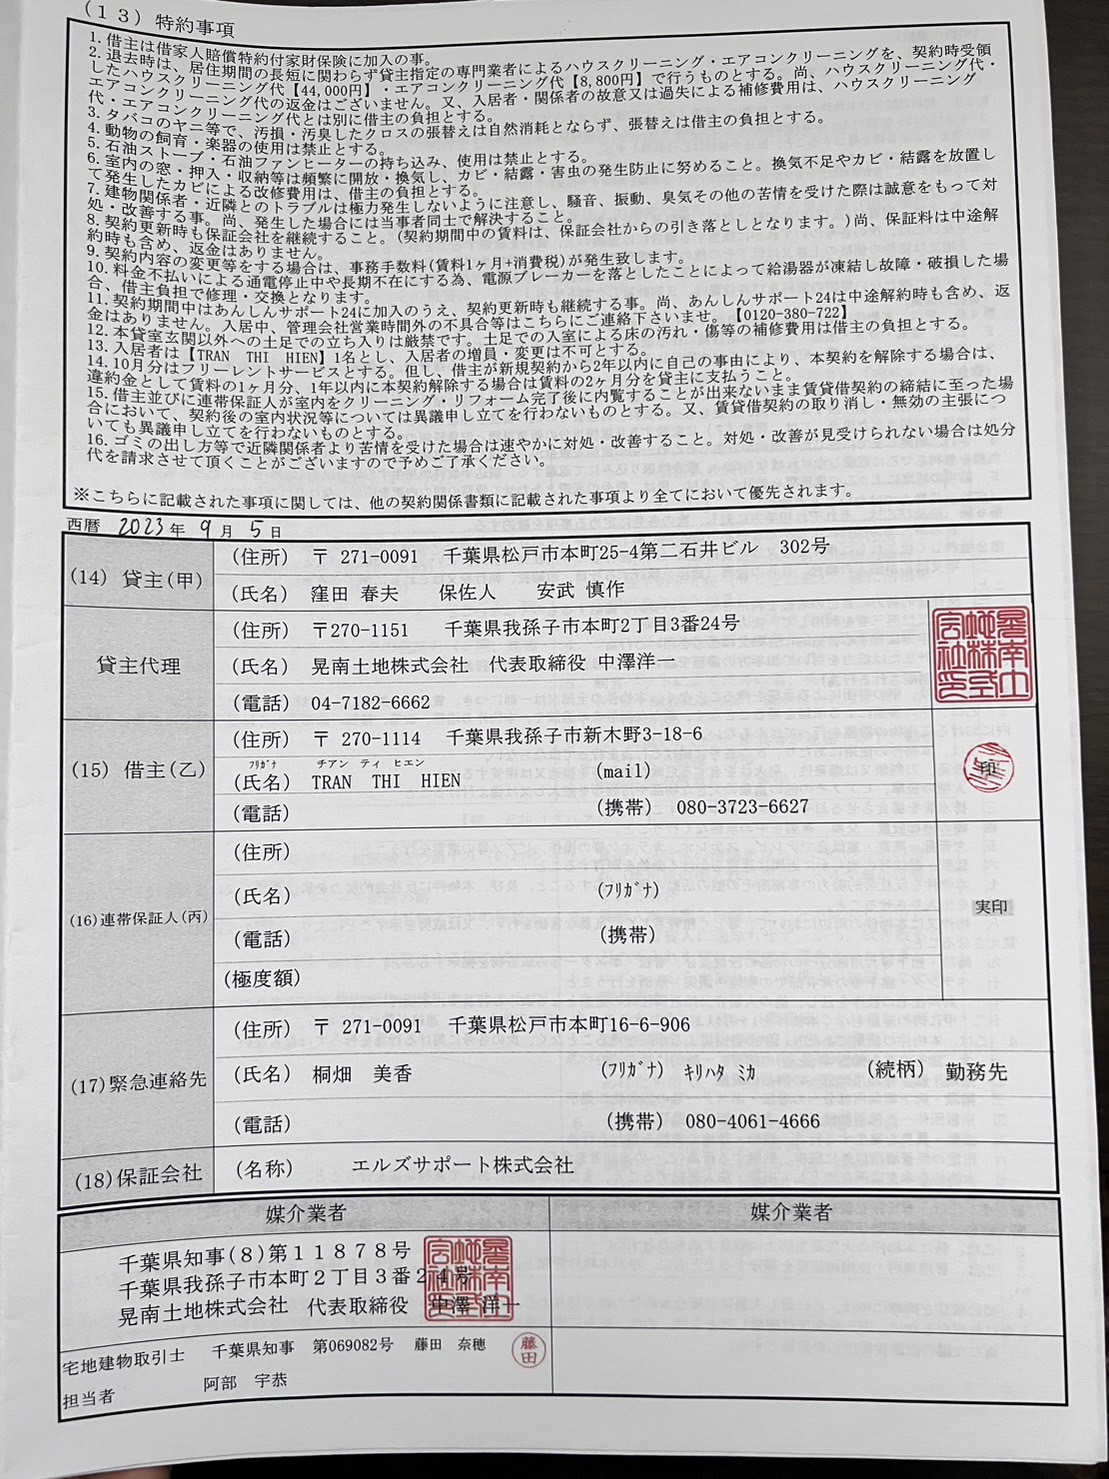 (１３) 特約事項
1. 借主は借家人賠償特約付家財保険に加入の事。
2. 退去時は、居住期間の長短に関わらず貸主指定の専門業者によるハウスクリーニング・エアコンクリーニングを、契約時受領
したハウスクリーニング代【44,000円】・エアコンクリーニング代【8,800円】で行うものとする。尚、ハウスクリーニング代・
エアコンクリーニング代の返金はございません。又、入居者・関係者の故意又は過失による補修費用は、ハウスクリーニング
代・エアコンクリーニング代とは別に借主の負担とする。
3. タバコのヤニ等で、汚損・汚臭したクロスの張替えは自然消耗とならず、張替えは借主の負担とする。
4. 動物の飼育・楽器の使用は禁止とする。
5. 石油ストーブ・石油ファンヒーターの持ち込み、使用は禁止とする。
6. 室内の窓・押入・収納等は頻繁に開放・換気し、カビ・結露・害虫の発生防止に努めること。換気不足やカビ・結露を放置し
て発生したカビによる改修費用は、借主の負担とする。
7. 建物関係者・近隣とのトラブルは極力発生しないように注意し、騒音、振動、臭気その他の苦情を受けた際は誠意をもって対
処・改善する事。尚、発生した場合には当事者同士で解決すること。
8. 契約更新時も保証会社を継続すること。(契約期間中の賃料は、保証会社からの引き落としとなります。)尚、保証料は中途解
約時も含め、返金はありません。
9. 契約内容の変更等をする場合は、事務手数料(賃料1ヶ月+消費税)が発生致します。
10. 料金不払いによる通電停止中や長期不在にする為、電源ブレーカーを落としたことによって給湯器が凍結し故障・破損した場
合、借主負担で修理・交換となります。
11. 契約期間中はあんしんサポート24に加入のうえ、契約更新時も継続する事。尚、あんしんサポート24は中途解約時も含め、返
金はありません。入居中、管理会社営業時間外の不具合等はこちらにご連絡下さいませ。【0120-380-722】
12. 本貸室玄関以外への土足での立ち入りは厳禁です。土足での入室による床の汚れ・傷等の補修費用は借主の負担とする。
13. 入居者は【TRAN THI HIEN】1名とし、入居者の増員・変更は不可とする。
14. 10月分はフリーレントサービスとする。但し、借主が新規契約から2年以内に自己の事由により、本契約を解除する場合は、
違約金として賃料の1ヶ月分、1年以内に本契約解除する場合は賃料の2ヶ月分を貸主に支払うこと。
15. 借主並びに連帯保証人が室内をクリーニング・リフォーム完了後に内覧することが出来ないまま賃貸借契約の締結に至った場
合において、契約後の室内状況等については異議申し立てを行わないものとする。又、賃貸借契約の取り消し・無効の主張につ
いても異議申し立てを行わないものとする。
16. ゴミの出し方等で近隣関係者より苦情を受けた場合は速やかに対処・改善すること。対処・改善が見受けられない場合は処分
代を請求させて頂くことがございますので予めご了承ください。
※こちらに記載された事項に関しては、他の契約関係書類に記載された事項より全てにおいて優先されます。
西暦 2023年 9月 5日
(14) 貸主(甲)
(住所) 〒 271-0091 千葉県松戸市本町25-4第二石井ビル 302号
(氏名) 窪田 春夫 保佐人 安武 慎作
貸主代理
(住所) 〒270-1151 千葉県我孫子市本町2丁目3番24号
(氏名) 晃南土地株式会社 代表取締役 中澤洋一
(電話) 04-7182-6662
晃南土地株式会社印
(15) 借主(乙)
(住所) 〒 270-1114 千葉県我孫子市新木野3-18-6
ﾌﾘｶﾞﾅ チアン ティ ヒエン
(氏名) TRAN THI HIEN (mail)
(電話) (携帯) 080-3723-6627
印
(16)連帯保証人(丙)
(住所)
(氏名) (ﾌﾘｶﾞﾅ)
(電話) (携帯)
(極度額)
実印
(17)緊急連絡先
(住所) 〒 271-0091 千葉県松戸市本町16-6-906
(氏名) 桐畑 美香 (ﾌﾘｶﾞﾅ) ｷﾘﾊﾀ ﾐｶ (続柄) 勤務先
(電話) (携帯) 080-4061-4666
(18)保証会社 (名称) エルズサポート株式会社
媒介業者 媒介業者
千葉県知事(８)第１１８７８号
千葉県我孫子市本町２丁目３番２４号
晃南土地株式会社 代表取締役 中澤 洋一
晃南土地株式会社印
宅地建物取引士 千葉県知事 第069082号 藤田 奈穂 藤田
担当者 阿部 宇恭